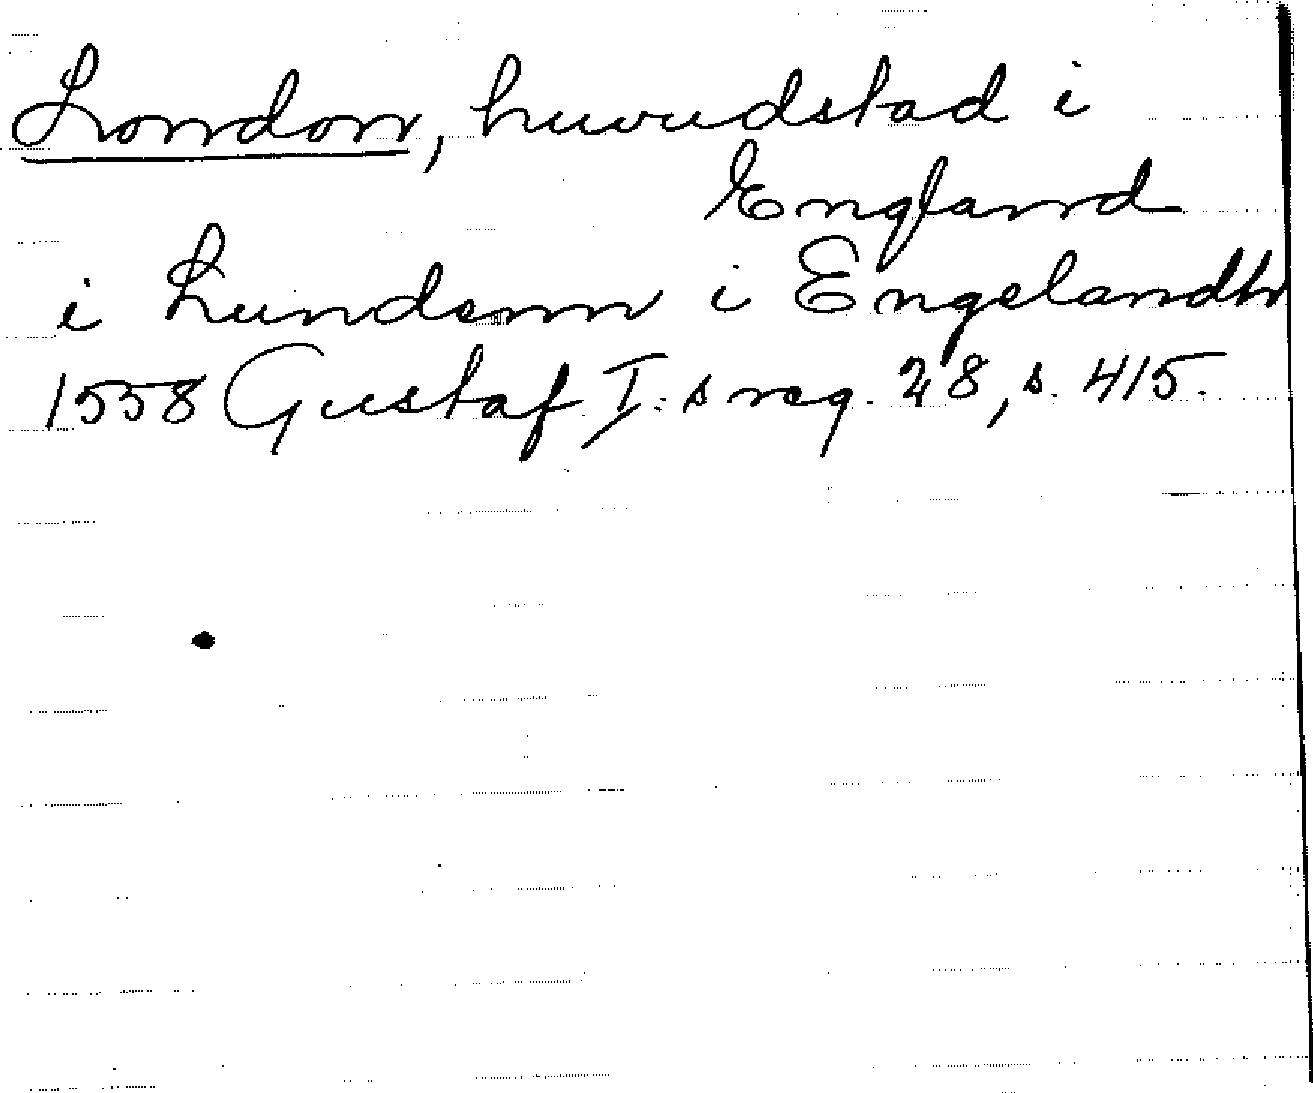 London, huvudstad i
England
i Lundenn i Engelandh
1558 Gustaf I:s reg. 28, s. 415.